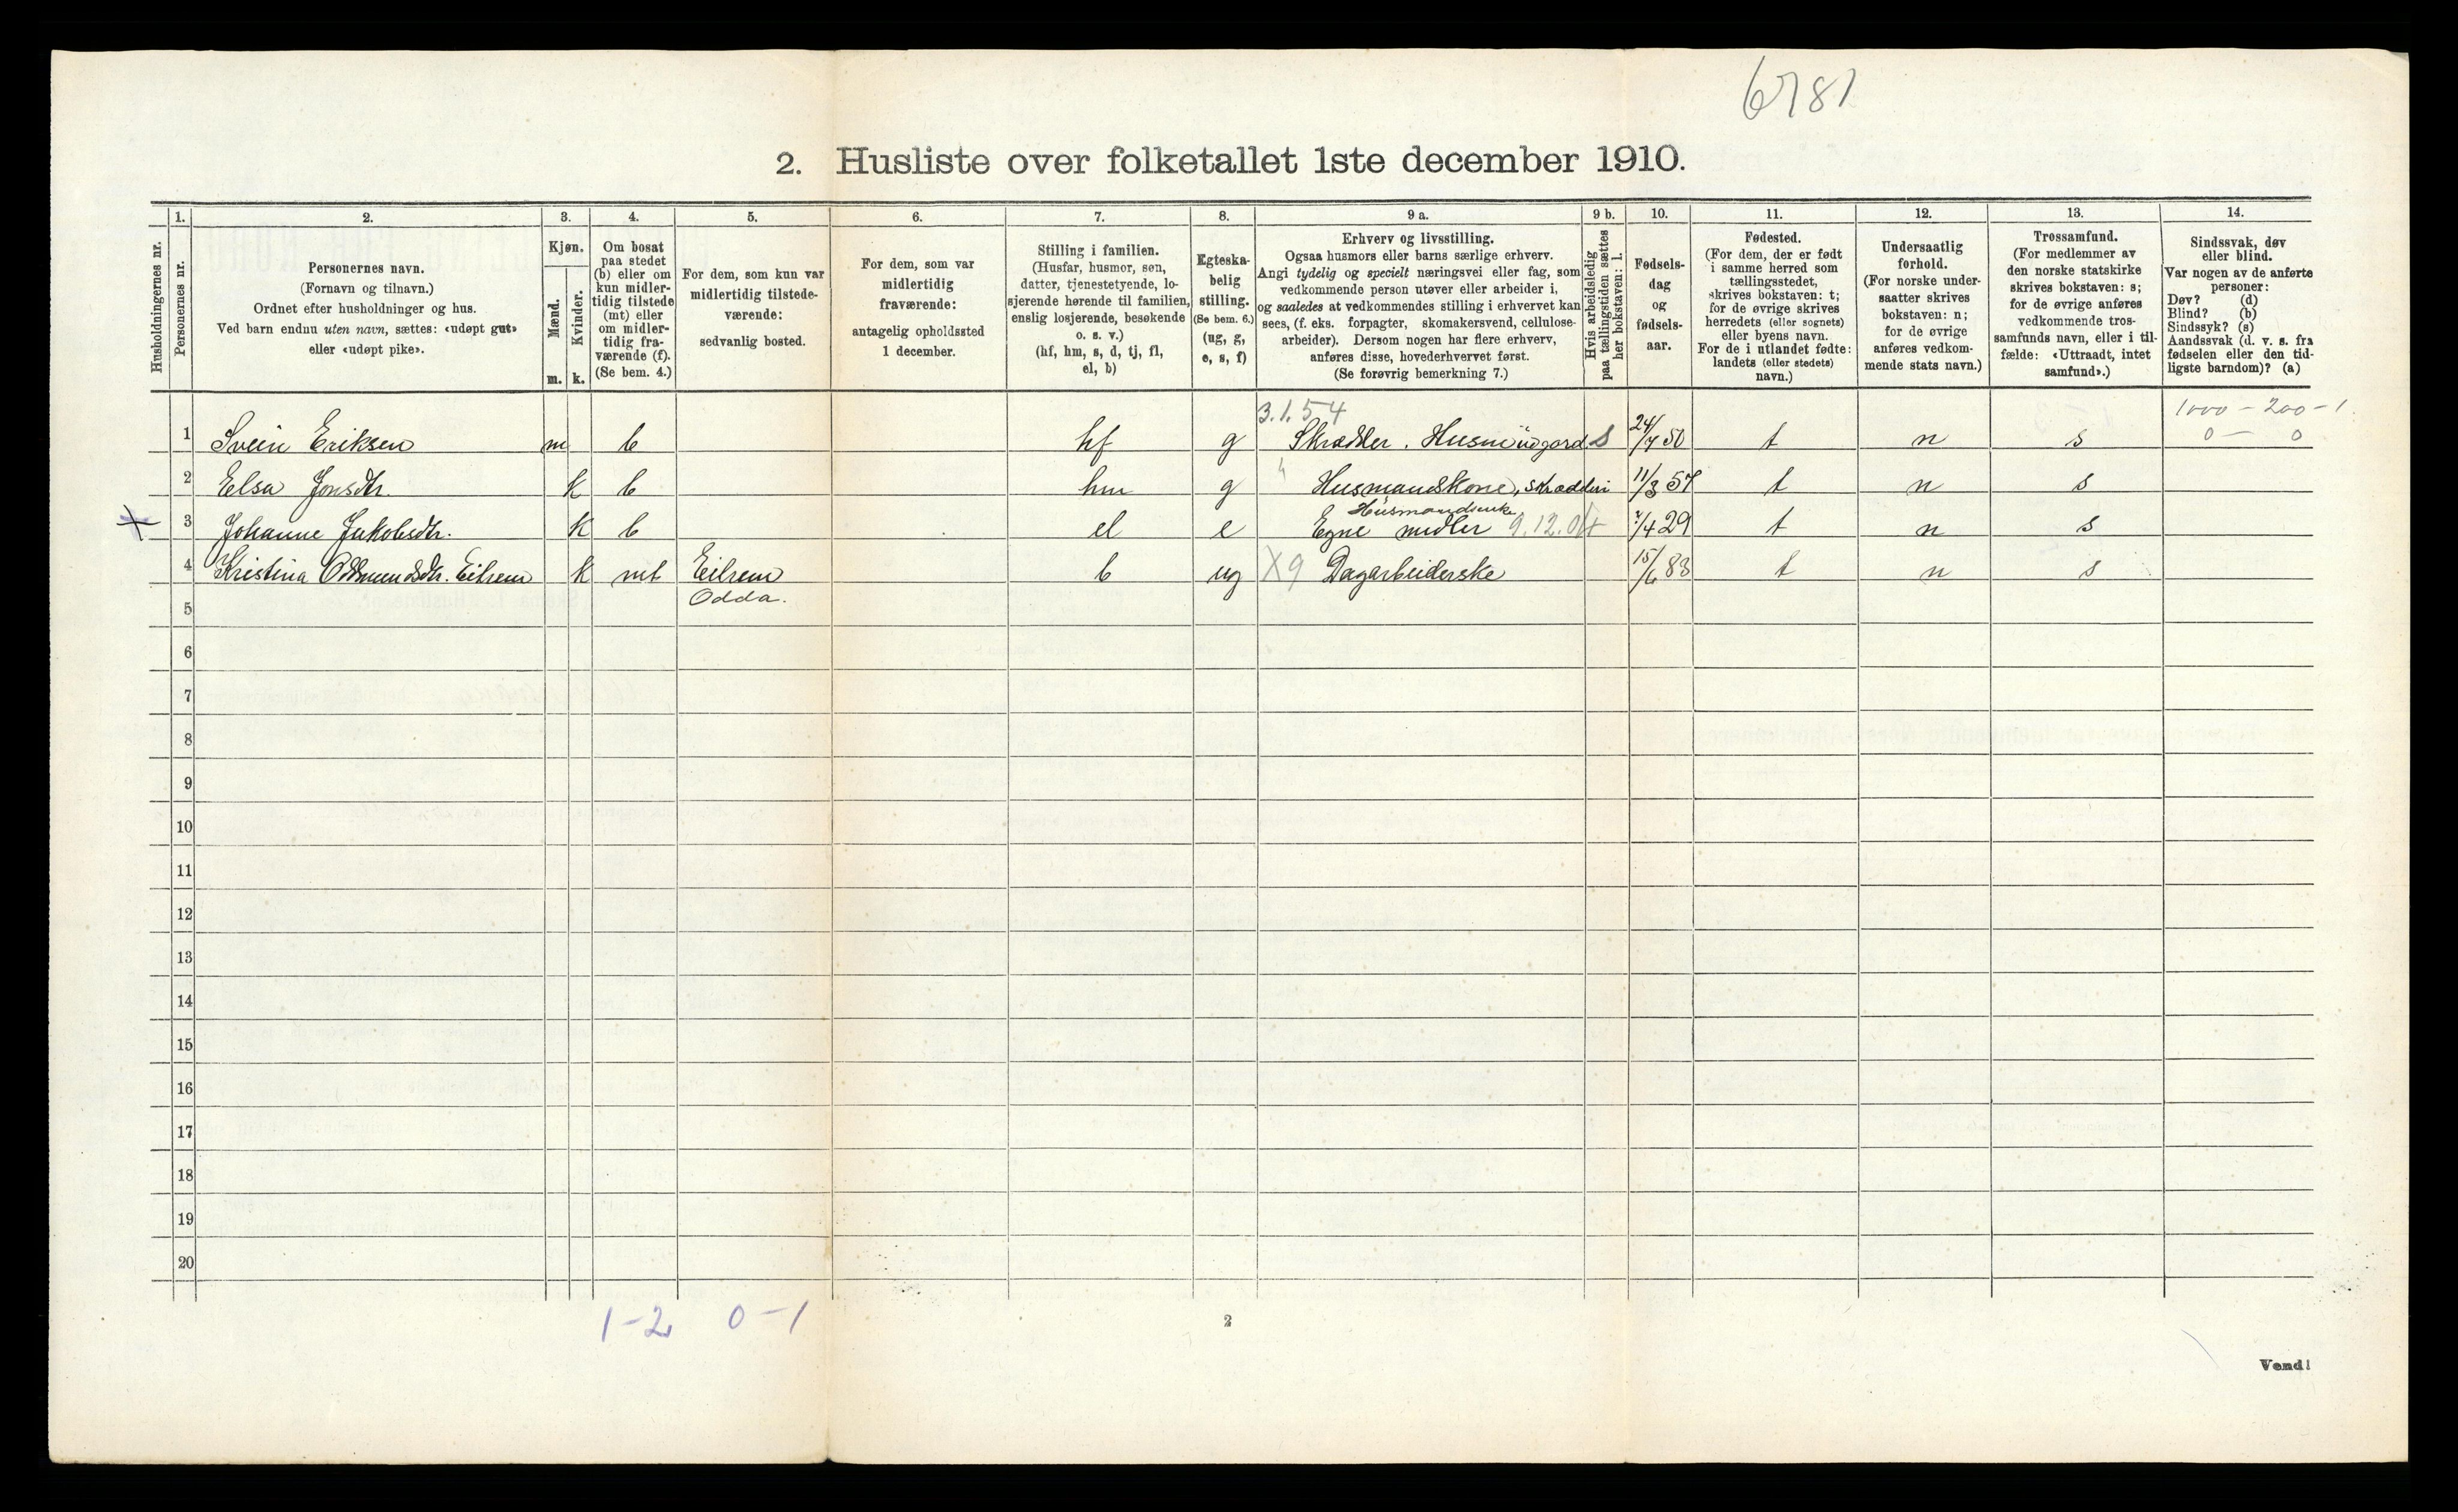 6781
2. Husliste over folketallet 1ste december 1910.
Husholdningernes nr.
1.
Personernes nr.
2.
Personernes navn.
(Fornavn og tilnavn.)
Ordnet efter husholdninger og hus.
Ved barn endnu uten navn, sættes: «udøpt gut»
eller «udøpt pike».
3.
Kjøn.
Mænd.
m.
Kvinder.
k.
4.
Om bosat
paa stedet
(b) eller om
kun midler-
tidig tilstede
(mt) eller
om midler-
tidig fra-
værende (f).
(Se bem. 4.)
5.
For dem, som kun var
midlertidig tilstede-
værende:
sedvanlig bosted.
6.
For dem, som var
midlertidig
fraværende:
antagelig opholdssted
1 december.
7.
Stilling i familien.
(Husfar, husmor, søn,
datter, tjenestetyende, lo-
sjerende hørende til familien,
enslig losjerende, besøkende
o. s. v.)
(hf, hm, s, d, tj, fl,
el, b)
8.
Egteska-
belig
stilling.
(Se bem. 6.)
(ug, g,
e, s, f)
9 a.
Erhverv og livsstilling.
Ogsaa husmors eller barns særlige erhverv.
Angi tydelig og specielt næringsvei eller fag, som
vedkommende person utøver eller arbeider i,
og saaledes at vedkommendes stilling i erhvervet kan
sees, (f. eks. forpagter, skomakersvend, cellulose-
arbeider). Dersom nogen har flere erhverv,
anføres disse, hovederhvervet først.
(Se forøvrig bemerkning 7.)
9 b.
Hvis arbeidsledig
paa tællingstiden sættes
her bokstaven: l.
10.
Fødsels-
dag
og
fødsels-
aar.
11.
Fødested.
(For dem, der er født
i samme herred som
tællingsstedet,
skrives bokstaven: t;
for de øvrige skrives
herredets (eller sognets)
eller byens navn.
For de i utlandet fødte:
landets (eller stedets)
navn.)
12.
Undersaatlig
forhold.
(For norske under-
saatter skrives
bokstaven: n;
for de øvrige
anføres vedkom-
mende stats navn.)
13.
Trossamfund.
(For medlemmer av
den norske statskirke
skrives bokstaven: s;
for de øvrige anføres
vedkommende tros-
samfunds navn, eller i til-
fælde: «Uttraadt, intet
samfund».)
14.
Sindssvak, døv
eller blind.
Var nogen av de anførte
personer:
Døv? (d)
Blind? (b)
Sindssyk? (s)
Aandssvak (d. v. s. fra
fødselen eller den tid-
ligste barndom)? (a)
3.1.54 1000 - 200 - 1
1 Svein Eriksen m b hf g Skrædder. Husm u gord S 24/7 50 t n s 0 — 0
2 Elsa Jonsdtr. k b hm g Husmandskone, Skrædderi 11/3 57 t n s
Husmandsenke
3 Johanne Jakobsdtr. k b el e Egne midler 9.12.04 7/4 29 t n s
4 Kristina Oddmundsdtr. Eitrem k mt Eitrem b ug X9 Dagarbeiderske 15/6 83 t n s
5 Odda.
6
7
8
9
10
11
12
13
14
15
16
17
18
19
20
1-2 0-1
2
Vend!